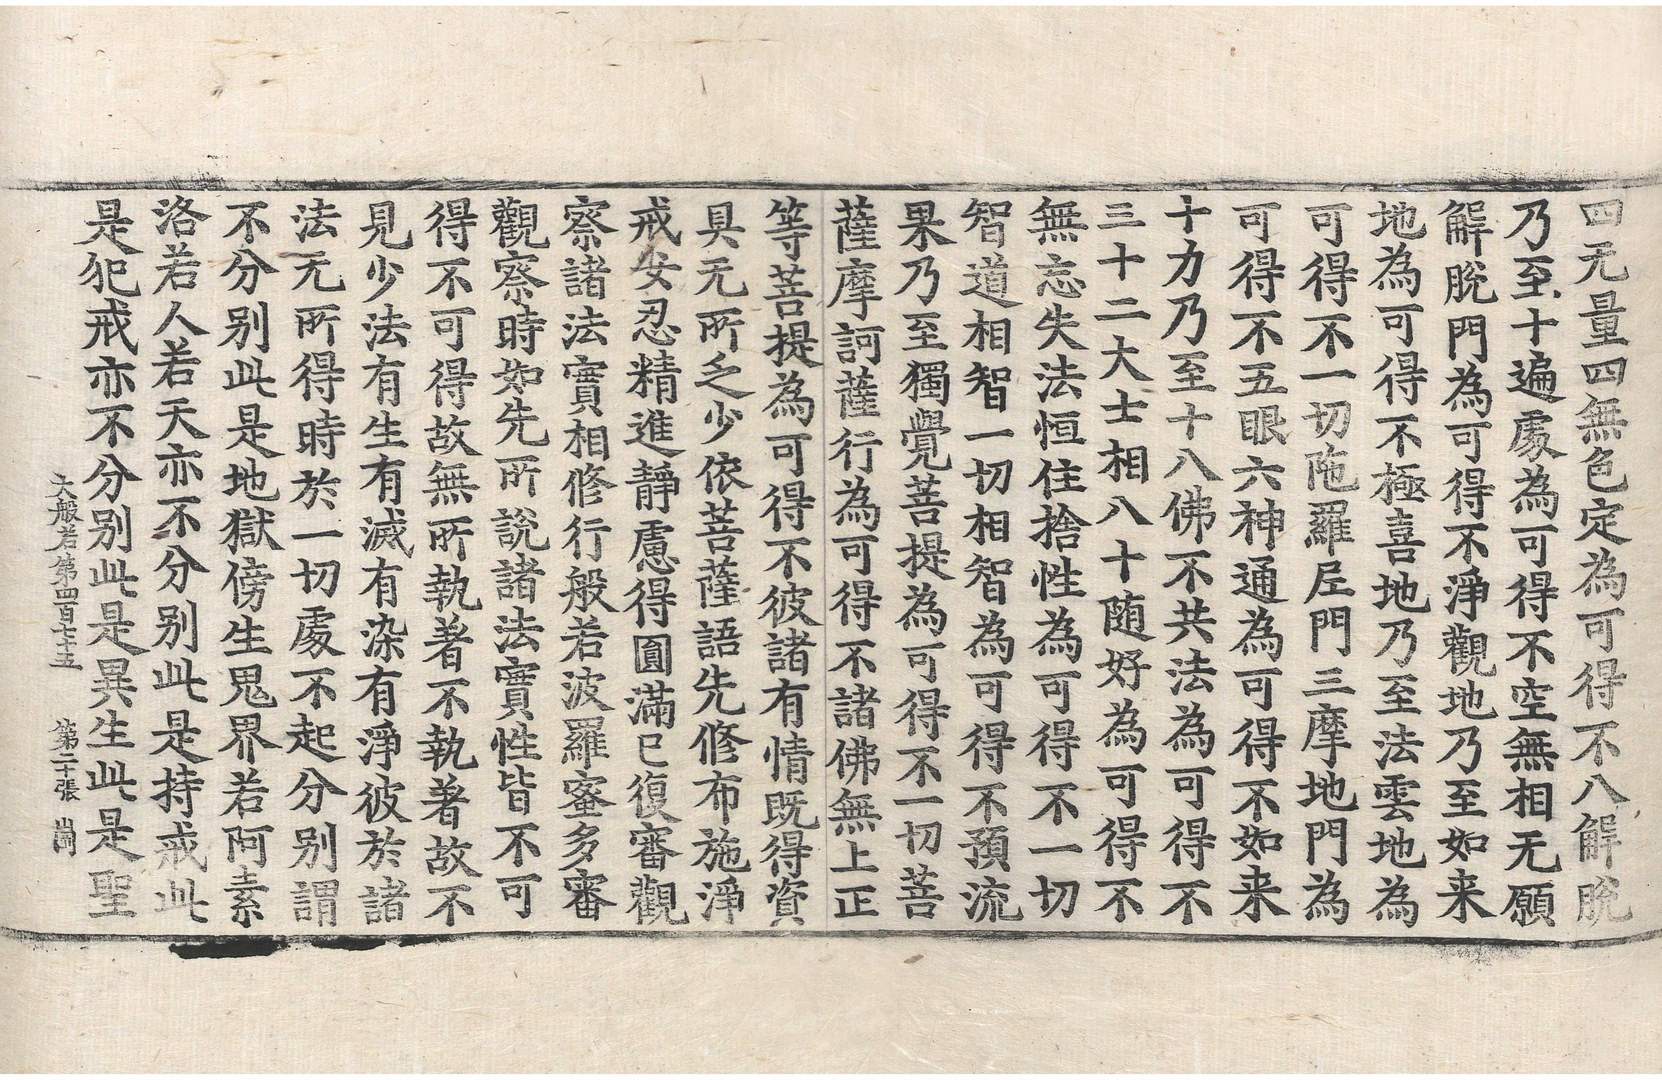 四无量四無色定為可得不八解脫
乃至十遍處為可得不空無相无願
解脫門為可得不淨觀地乃至如来
地為可得不極喜地乃至法雲地為
可得不一切陁羅尼門三摩地門為
可得不五眼六神通為可得不如来
十力乃至十八佛不共法為可得不
三十二大士相八十随好為可得不
無忘失法恒住捨性為可得不一切
智道相智一切相智為可得不預流
果乃至獨覺菩提為可得不一切菩
薩摩訶薩行為可得不諸佛無上正
等菩提為可得不彼諸有情既得資
具无所乏少依菩薩語先修布施淨
戒安忍精進靜慮得圓滿已復審觀
察諸法實相修行般若波羅蜜多審
觀察時如先所說諸法實性皆不可
得不可得故無所執著不執著故不
見少法有生有滅有染有淨彼於諸
法无所得時於一切處不起分別謂
不分別此是地獄傍生鬼界若阿素
洛若人若天亦不分別此是持戒此
是犯戒亦不分別此是異生此是聖
大般若第四百七十五 第二十張 崗